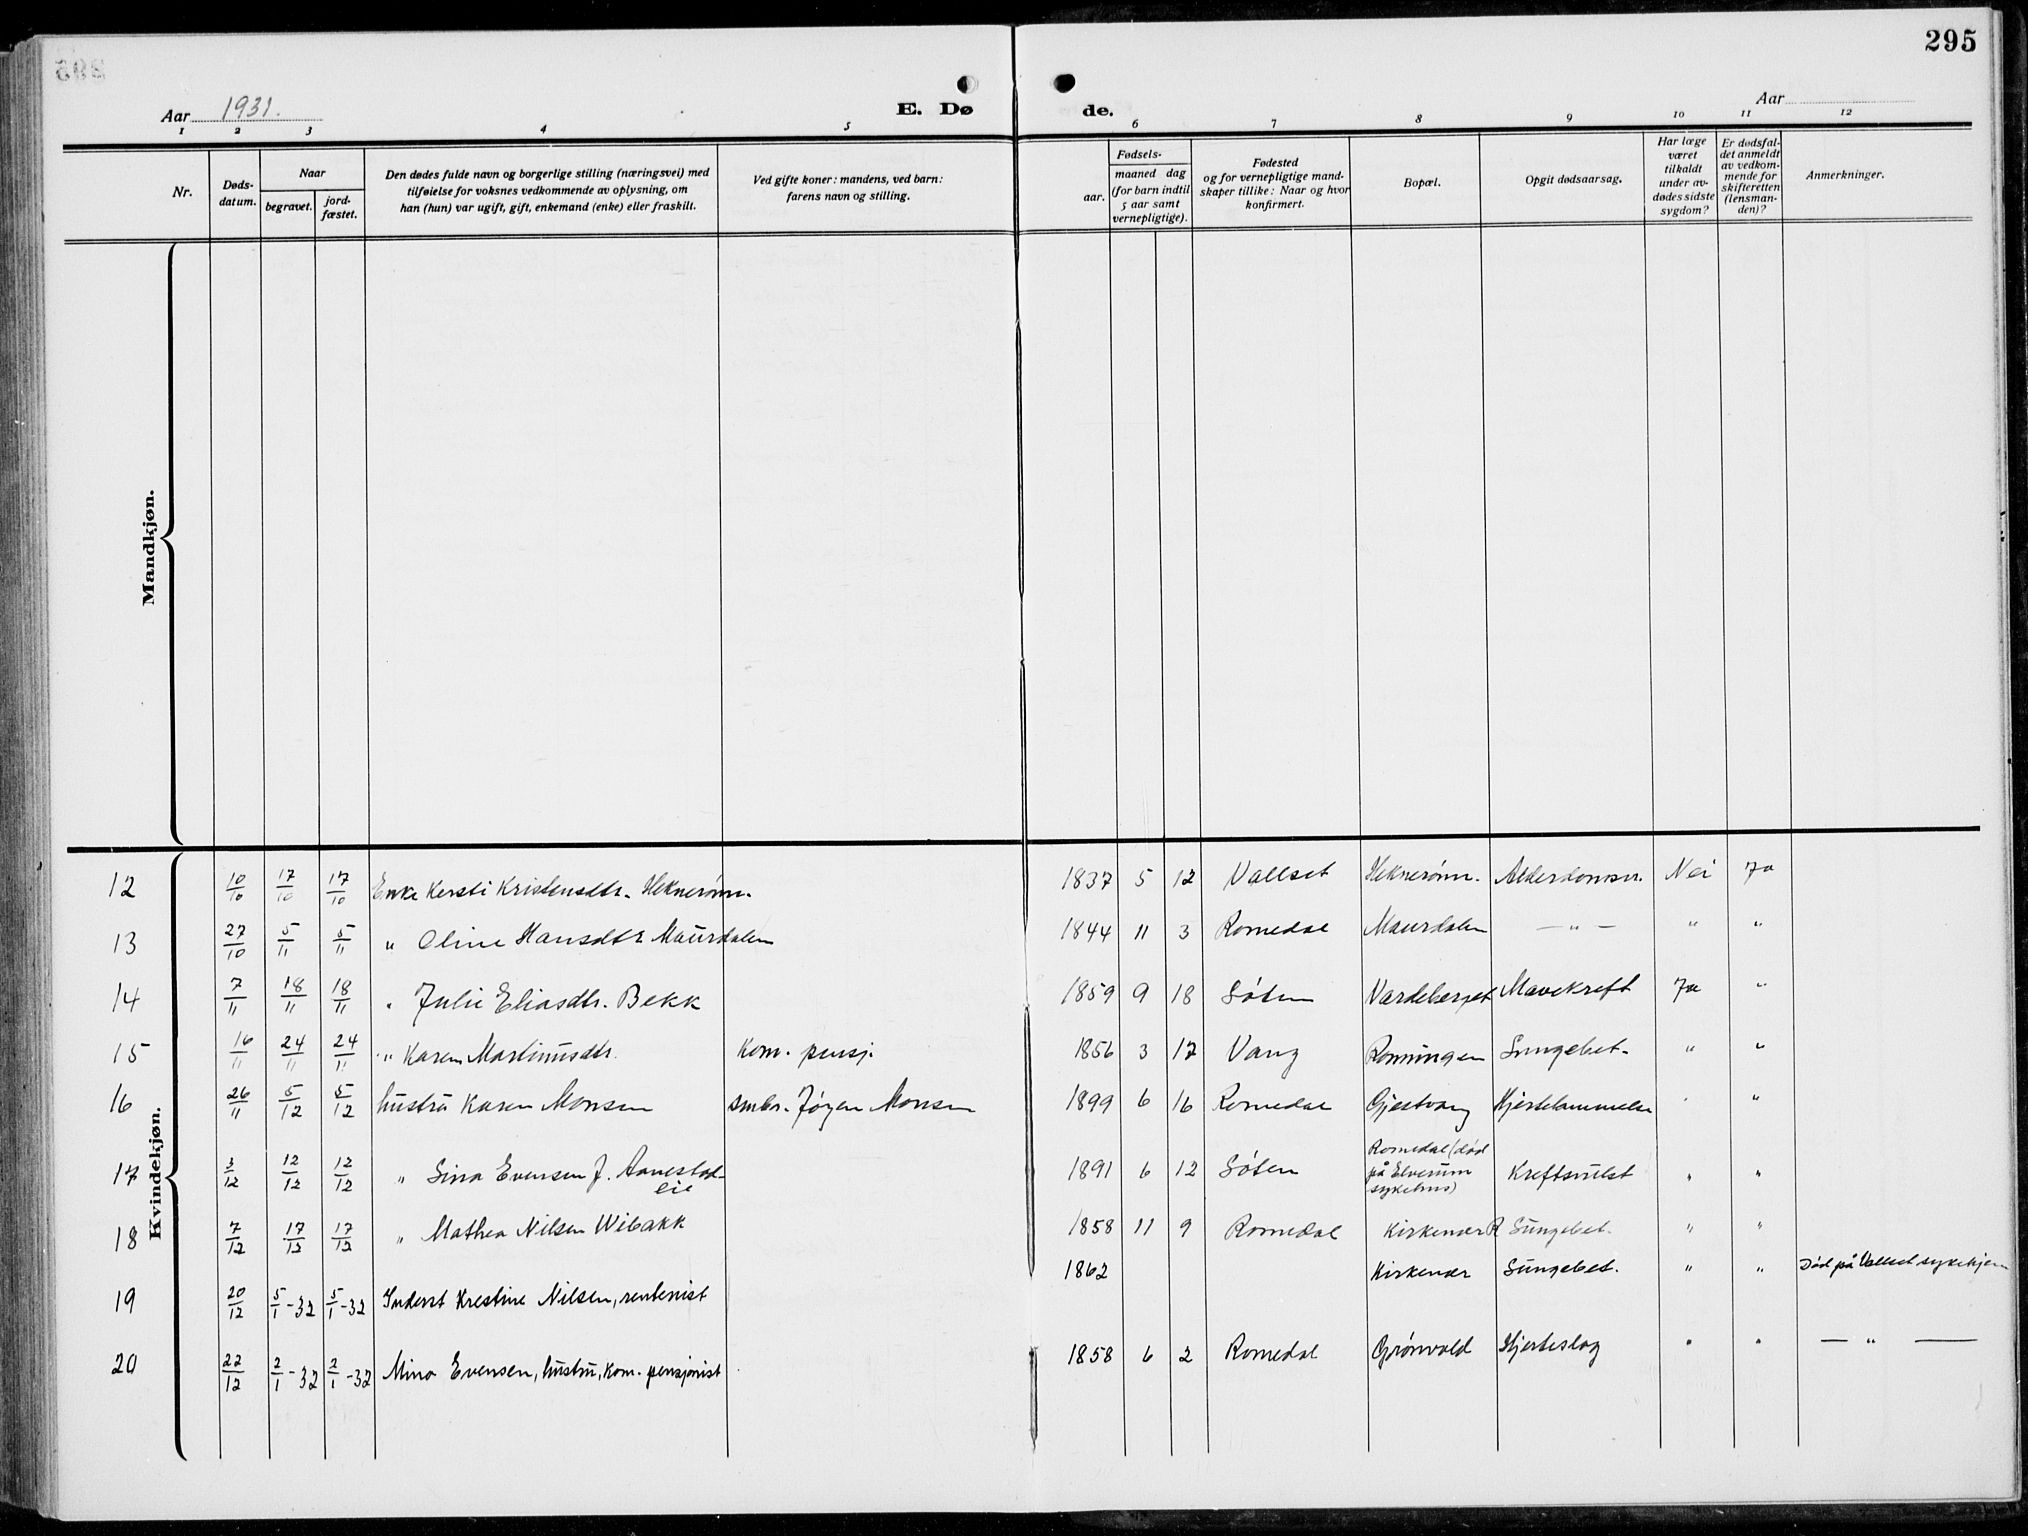 295
Aar 1931.
E. Dø de.
Aar
1 2 3 4 5 6 7 8 9 10 11 12
Nr.
Døds-
datum.
Naar
begravet.
jord-
fæstet.
Den dødes fulde navn og borgerlige stilling (næringsvei) med
tilføielse for voksnes vedkommende av oplysning, om
han (hun) var ugift, gift, enkemand (enke) eller fraskilt.
Ved gifte koner: mandens, ved barn:
farens navn og stilling.
Fødsels-
aar.
maaned dag
(for barn indtil
5 aar samt
vernepligtige).
Fødested
og for vernepligtige mand-
skaper tillike: Naar og hvor
konfirmert.
Bopæl.
Opgit dødsaarsag.
Har læge
været
tilkaldt
under av-
dødes sidste
sygdom?
Er dødsfal-
det anmeldt
av vedkom-
mende for
skifteretten
(lensman-
den)?
Anmerkninger.
Mandkjøn.
Kvindekjøn.
12 10/10 17/10 17/10 Enke Kersti Kristensdtr. Heknerønn. 1837 5 12 Vallset Heknerønn. Alderdomssv. Nei Ja
13 27/10 5/11 5/11 " Oline Hansdtr Maurdalen 1844 11 3 Romedal Maurdalen — " — " "
14 7/11 18/11 18/11 " Julie Eliasdtr. Bekk 1859 9 18 Sôten Vardeberget Mavekreft Ja "
15 16/11 24/11 24/11 " Karen Martinusdtr. Kom. pensj. 1856 3 17 Vang Rønningen Lungebet. " "
16 26/11 5/12 5/12 hustru Karen Monsen smbr. Jørgen Monsen 1899 6 16 Romedal Gjestvang Hjertelammelse " "
17 3/12 12/12 12/12 " Sina Evensen f. Aanestad-
eie 1891 6 12 Sôten Romedal (død
på Elverum
sykehus) Kreftsvulst " "
18 7/12 17/12 17/12 " Mathea Nilsen Wibakk 1858 11 9 Romedal Kirkenær R Lungebet. " "
19 20/12 5/1-32 5/1-32 Inderst Krestine Nilsen, rentenist 1862 Kirkenær Lungebet. " " Død på Vallset sykehjem
20 22/12 2/1-32 2/1-32 Mina Evensen, hustru, kom. pensjonist 1858 6 2 Romedal Grønvold Hjerteslag " " — " —